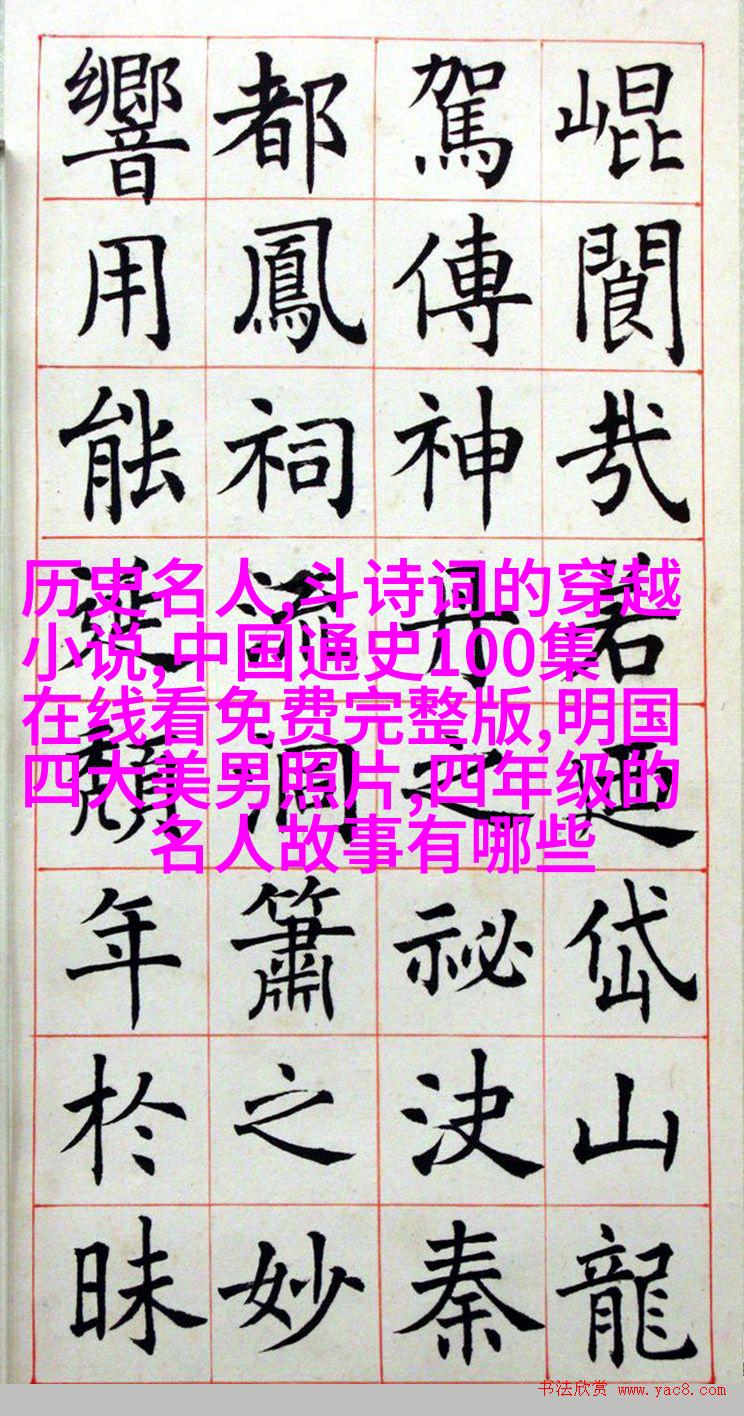 崐閬若岱山龍
駕傳神丹之祕決秦
都鳳祠流洞簫之妙
響用能延頽年於昧
历史名人,斗诗词的穿越
小说,中国通史100集
在线看免费完整版,明国
四大美男照片,四年级的
名人故事有哪些
书法欣赏 www.yac8.com